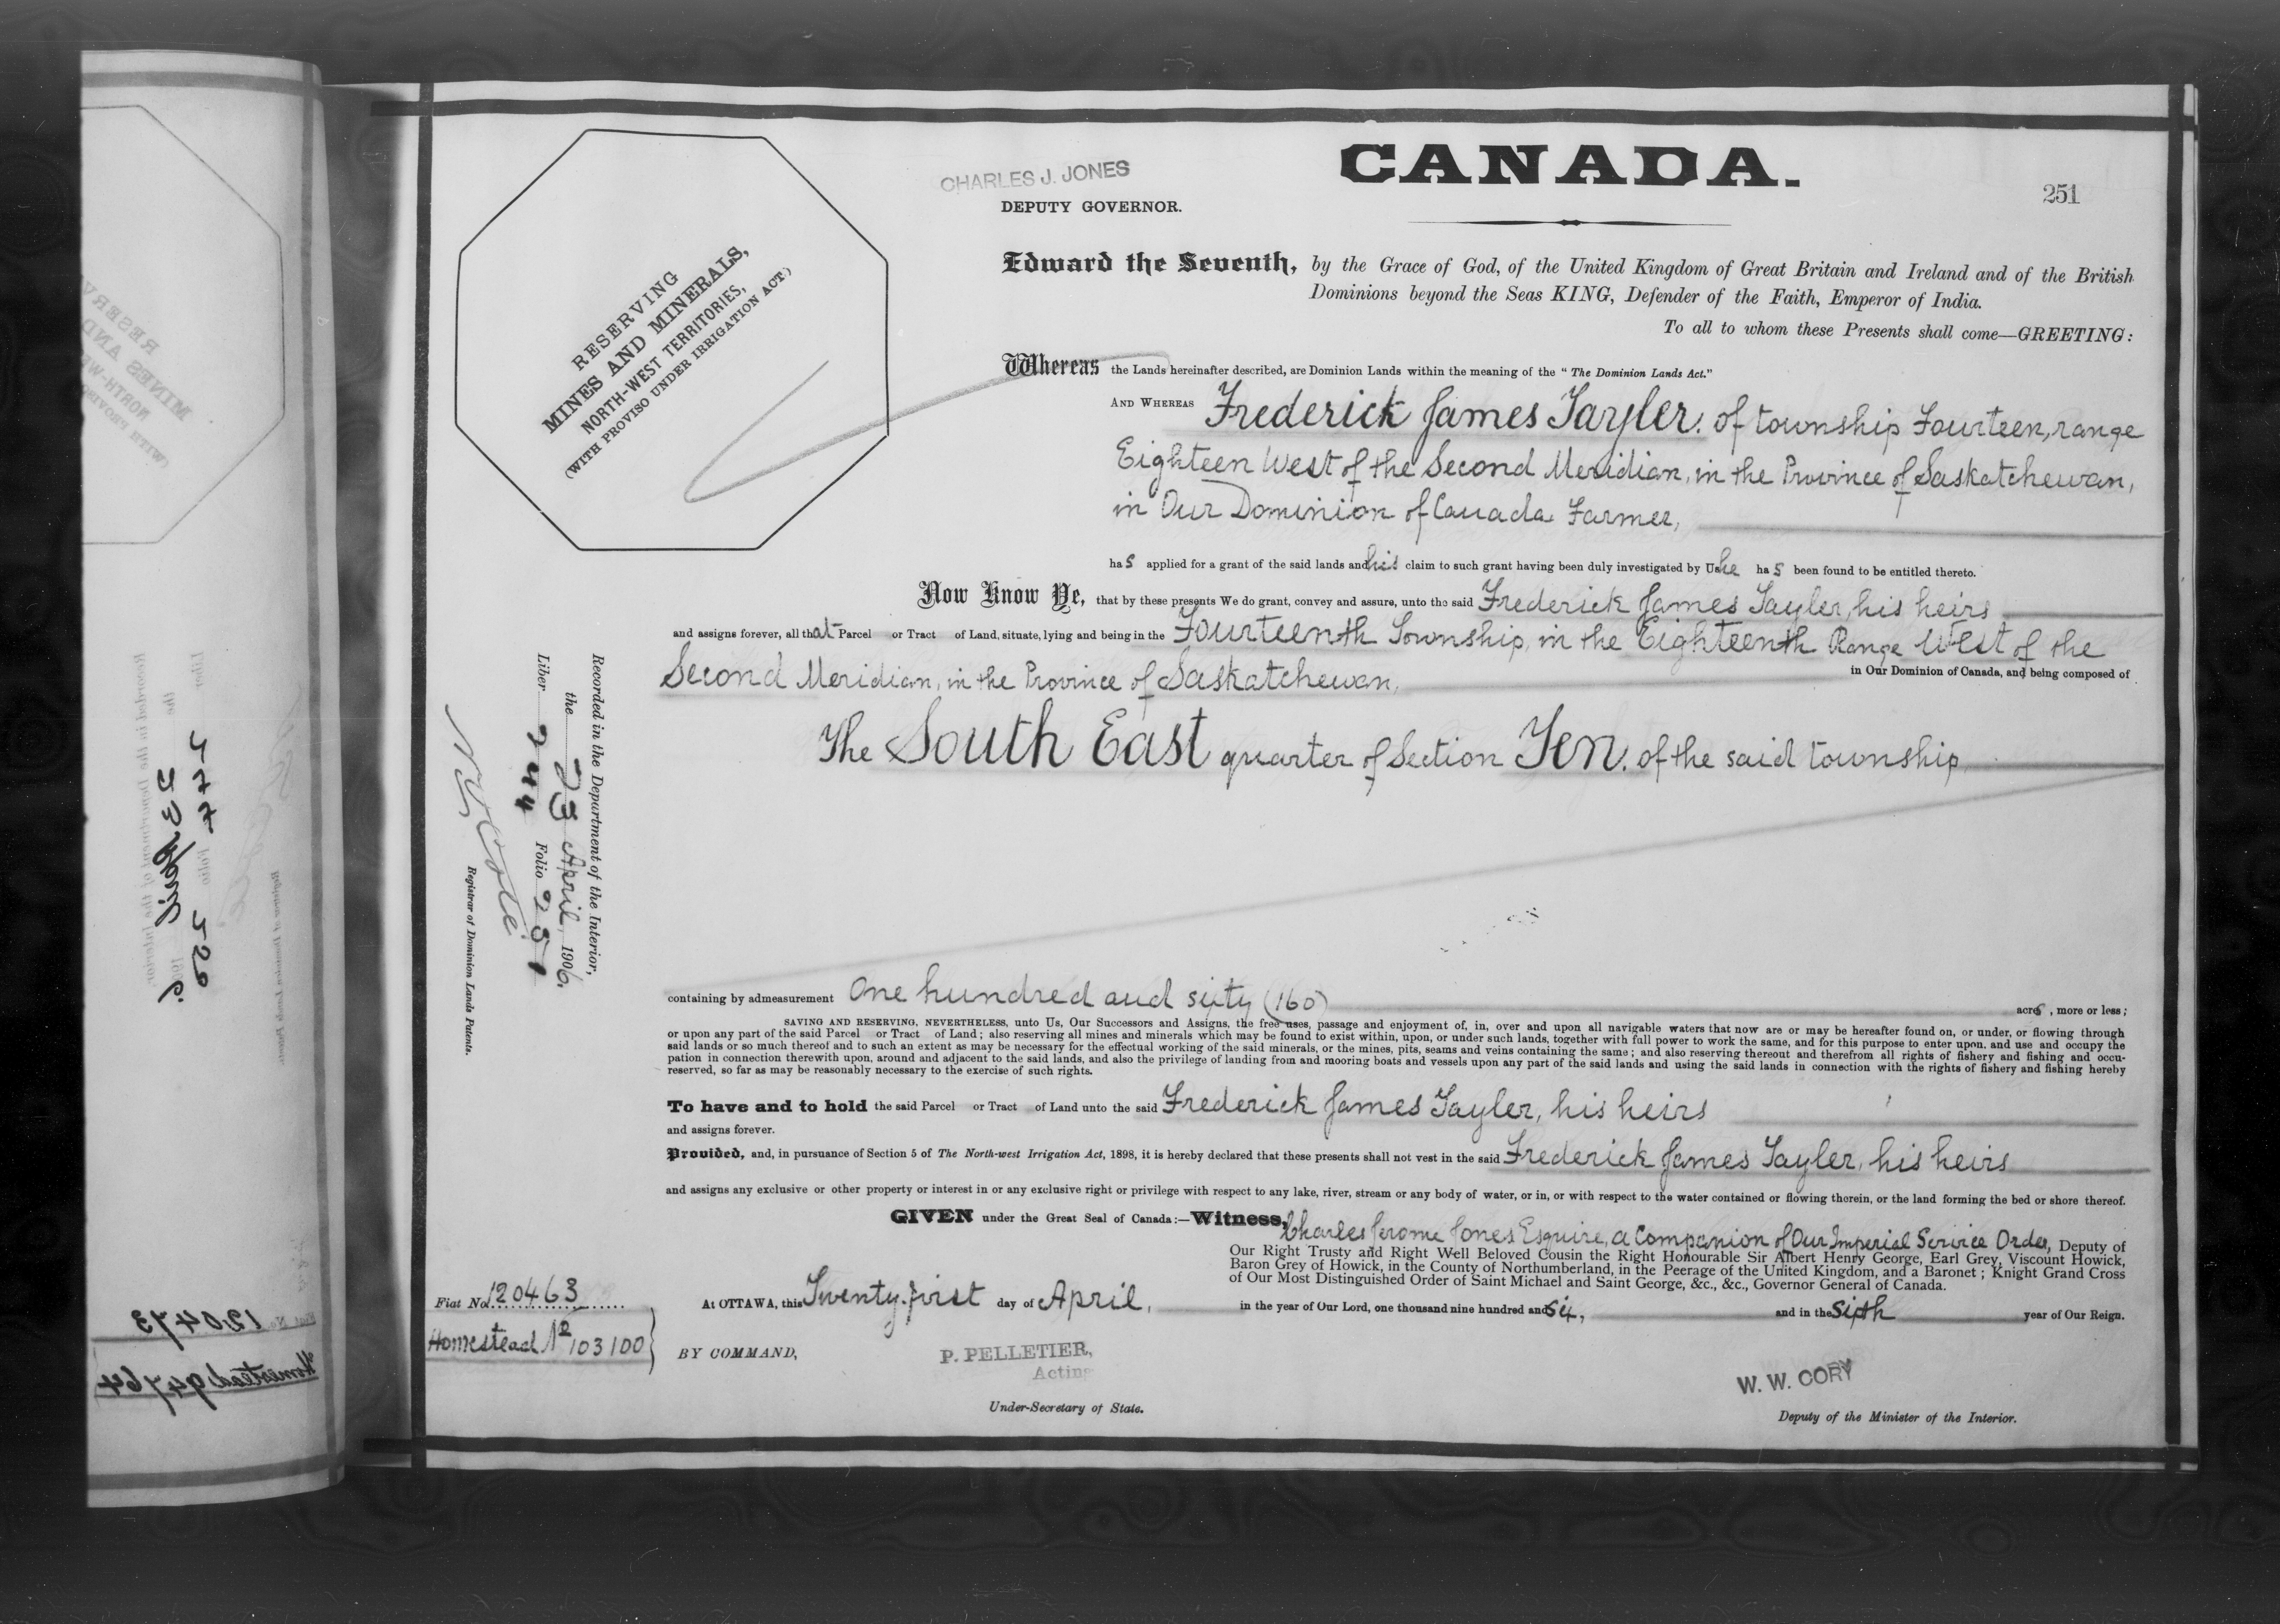 CHARLES J. JONES
DEPUTY GOVERNOR.
CANADA.
251
RESERVING
MINES AND MINERALS,
NORTH-WEST TERRITORIES,
(WITH PROVISO UNDER IRRIGATION ACT.)
Edward the Seventh, by the Grace of God, of the United Kingdom of Great Britain and Ireland and of the British
Dominions beyond the Seas KING, Defender of the Faith, Emperor of India.
To all to whom these Presents shall come—GREETING:
Whereas the Lands hereinafter described, are Dominion Lands within the meaning of the "The Dominion Lands Act."
AND WHEREAS Frederick James Tayler. of township Fourteen, range
Eighteen West of the Second Meridian, in the Province of Saskatchewan,
in Our Dominion of Canada Farmer,
has applied for a grant of the said lands and his claim to such grant having been duly investigated by Us he has been found to be entitled thereto.
Now Know Ye, that by these presents We do grant, convey and assure, unto the said Frederick James Tayler, his heirs
and assigns forever, all that Parcel or Tract of Land, situate, lying and being in the Fourteenth Township, in the Eighteenth Range West of the
Second Meridian, in the Province of Saskatchewan, in Our Dominion of Canada, and being composed of
The South East quarter of Section Ten. of the said township
Recorded in the Department of the Interior,
the 23 April, 1906,
Liber 244 Folio 251
N. O. Coté
Registrar of Dominion Lands Patents.
containing by admeasurement One hundred and sixty (160) acres, more or less;
SAVING AND RESERVING, NEVERTHELESS, unto Us, Our Successors and Assigns, the free uses, passage and enjoyment of, in, over and upon all navigable waters that now are or may be hereafter found on, or under, or flowing through
or upon any part of the said Parcel or Tract of Land; also reserving all mines and minerals which may be found to exist within, upon, or under such lands, together with full power to work the same, and for this purpose to enter upon, and use and occupy the
said lands or so much thereof and to such an extent as may be necessary for the effectual working of the said minerals, or the mines, pits, seams and veins containing the same; and also reserving thereout and therefrom all rights of fishery and fishing and occu-
pation in connection therewith upon, around and adjacent to the said lands, and also the privilege of landing from and mooring boats and vessels upon any part of the said lands and using the said lands in connection with the rights of fishery and fishing hereby
reserved, so far as may be reasonably necessary to the exercise of such rights.
To have and to hold the said Parcel or Tract of Land unto the said Frederick James Tayler, his heirs
and assigns forever.
Provided, and, in pursuance of Section 5 of The North-west Irrigation Act, 1898, it is hereby declared that these presents shall not vest in the said Frederick James Tayler, his heirs
and assigns any exclusive or other property or interest in or any exclusive right or privilege with respect to any lake, river, stream or any body of water, or in, or with respect to the water contained or flowing therein, or the land forming the bed or shore thereof.
GIVEN under the Great Seal of Canada:—Witness, Charles Jerome Jones Esquire, a Companion of Our Imperial Service Order, Deputy of
Our Right Trusty and Right Well Beloved Cousin the Right Honourable Sir Albert Henry George, Earl Grey, Viscount Howick,
Baron Grey of Howick, in the County of Northumberland, in the Peerage of the United Kingdom, and a Baronet; Knight Grand Cross
of Our Most Distinguished Order of Saint Michael and Saint George, &c., &c., Governor General of Canada.
Fiat No. 120463
Homestead No 103100
At OTTAWA, this Twenty-first day of April, in the year of Our Lord, one thousand nine hundred and six, and in the sixth year of Our Reign.
BY COMMAND,
P. PELLETIER,
Acting
Under-Secretary of State.
W. W. CORY
Deputy of the Minister of the Interior.
120473
Homestead 94764